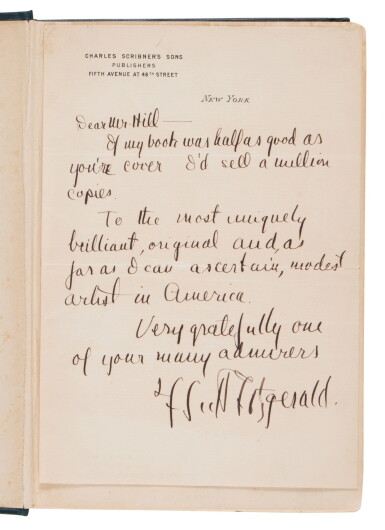 CHARLES SCRIBNER'S SONS
PUBLISHERS
FIFTH AVENUE AT 48TH STREET
NEW YORK
Dear Mr Hill —
If my book was half as good as
you're cover I'd sell a million
copies.
To the most uniquely
brilliant, original and, as
far as I can ascertain, modest
artist in America.
Very gratefully one
of your many admirers
F Scott Fitzgerald.